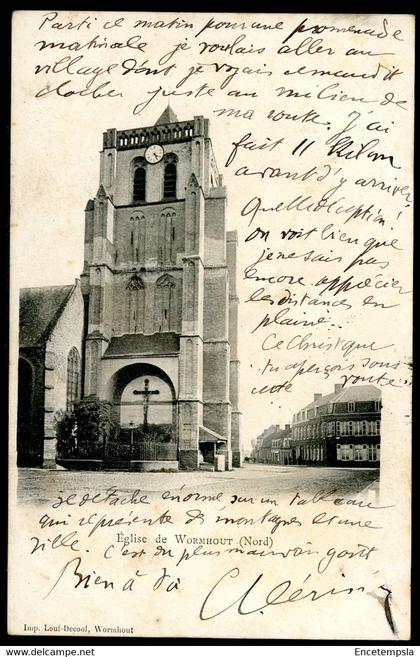 Parti ce matin pour une promenade
matinale je voulais aller au
village dont je voyais le maudit
clocher juste au milieu de
ma route. J'ai
fait 11 Kilom
avant d'y arriver
Quelle déception!
On voit bien que
je ne sais pas
encore apprécier
les distances en
plaine.
Ce Christ que
tu aperçois sous
cette voute
se détache énorme sur un tableau
qui représente des montagnes et une
ville. C'est du plus mauvais goût
Église de WORMHOUT (Nord)
Bien à toi
Imp. Louf-Decool, Wormhout